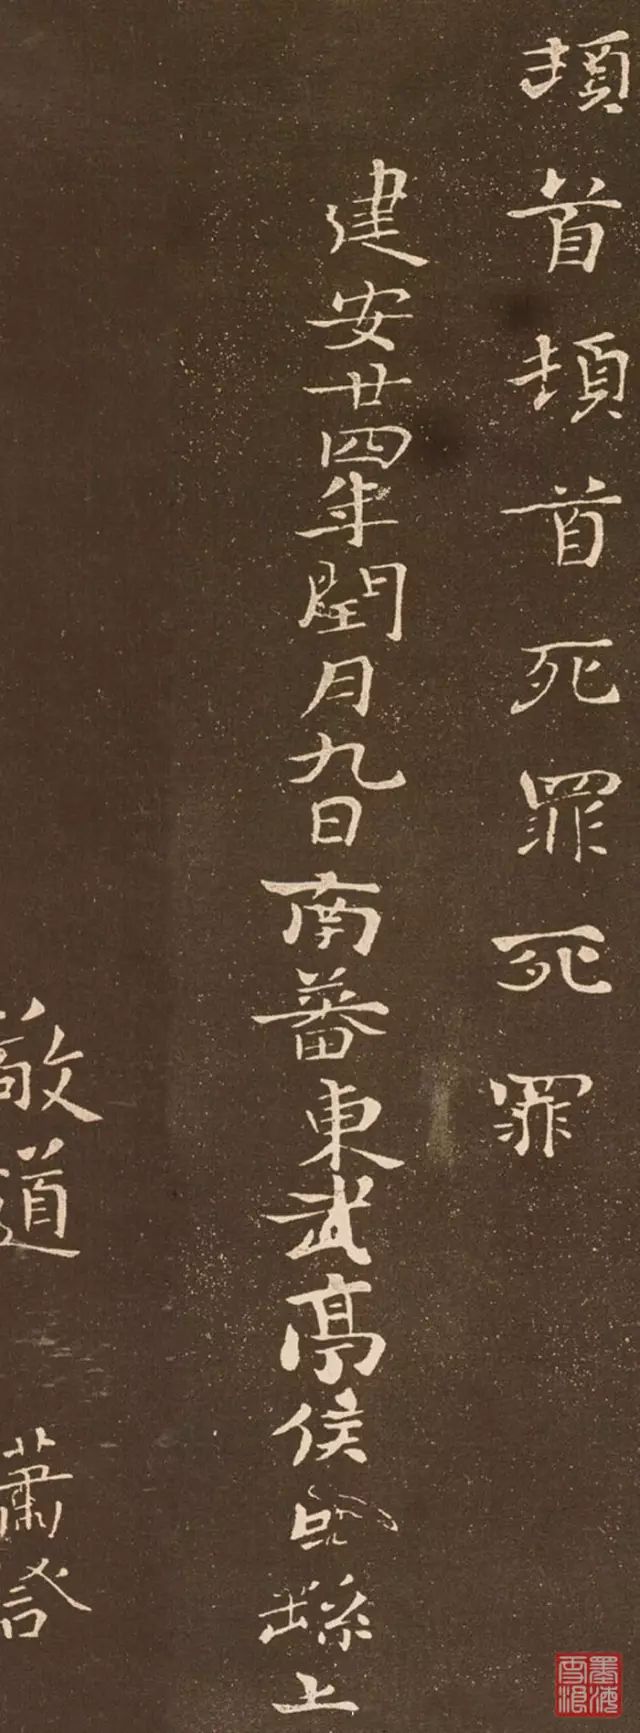 頓首頓首死罪死罪
建安廿四年閏月九日南蕃東武亭侯臣繇上
道 蕭
墨海
雪浪